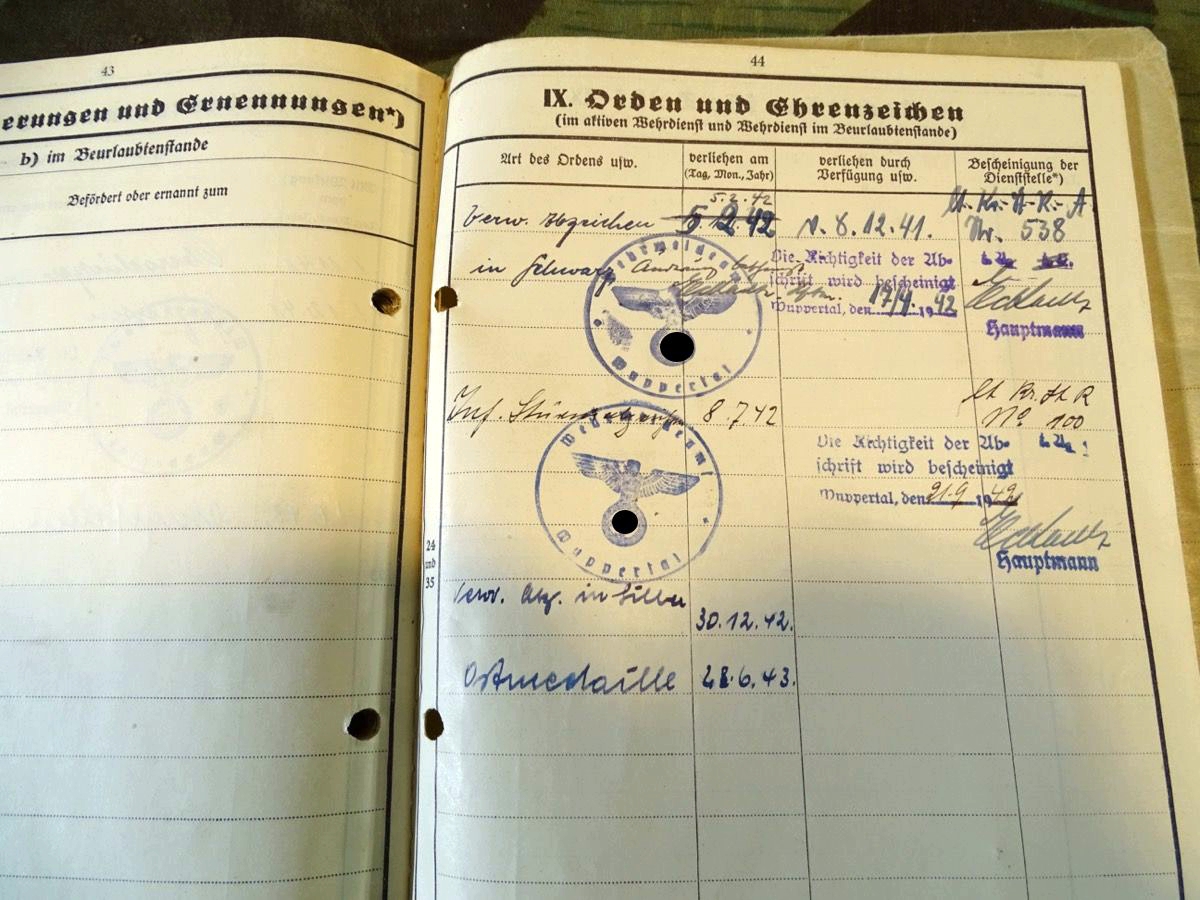 43
erungen und Ernennungen*)
b) im Beurlaubtenstande
Befördert oder ernannt zum
44
IX. Orden und Ehrenzeichen
(im aktiven Wehrdienst und Wehrdienst im Beurlaubtenstande)
Art des Ordens usw.
verliehen am
(Tag, Mon., Jahr)
verliehen durch
Verfügung usw.
Bescheinigung der
Dienststelle*)
5.2.42
Verw. Abzeichen
5.2.42
v. 8.12.41.
Nr. 538
in Schwarz
Wehrmeldeamt
Wuppertal
Die Richtigkeit der Ab-
schrift wird bescheinigt
Wuppertal, den 17/4. 1942
Hauptmann
Inf. Sturmabzeichen
8.7.42
No 100
Wehrmeldeamt
Wuppertal
Die Richtigkeit der Ab-
schrift wird bescheinigt
Wuppertal, den 21.9 1942
Hauptmann
24
und
35
Verw. Abz. in Silber
30.12.42.
Ostmedaille
28.6.43.